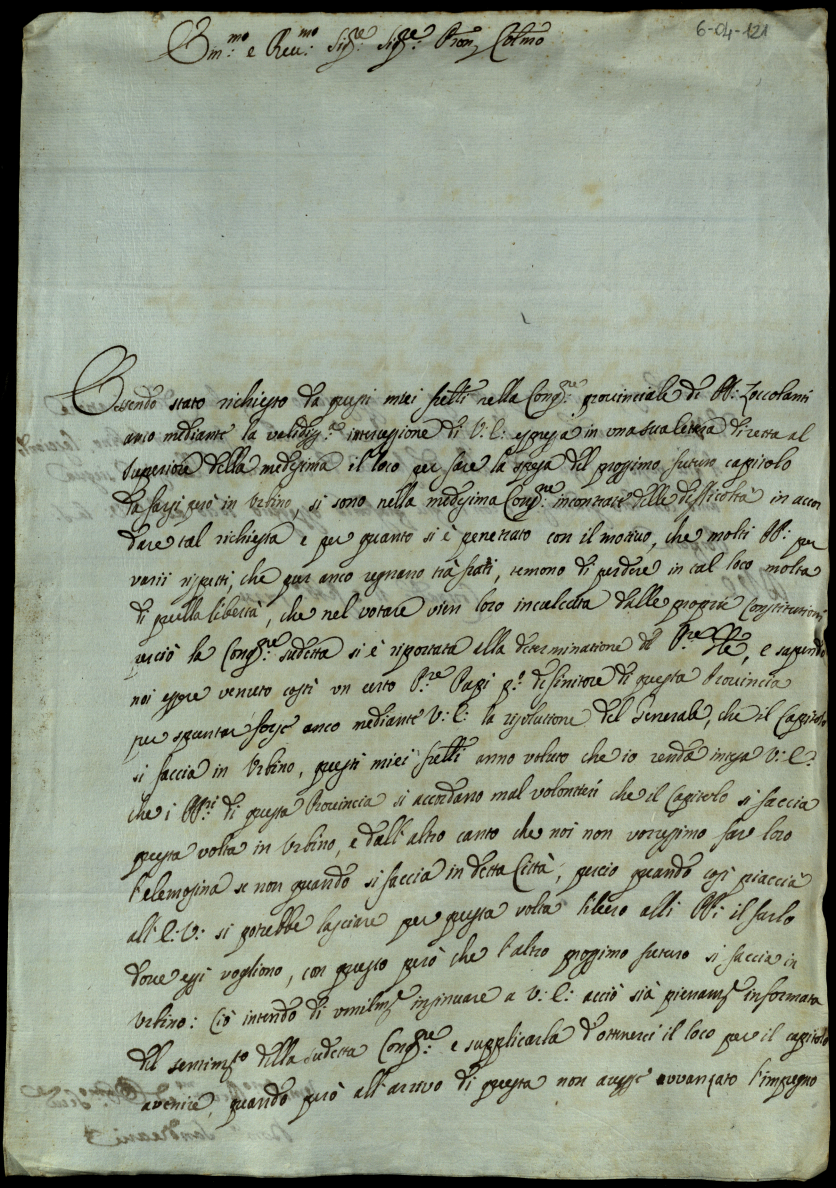 6-04-121
Em:mo e Reu:mo Sig:re Sig:re Pron Colmo
Essendo stato richiesto da questi miei frelli nella Cong:ne prouinciale de PP: Zoccolanti
anco mediante la validiss:a intercessione di V: E: espressa in una sua lettera diretta al
Superiore della medesima il loco per fare la spesa del prossimo futuro capitolo
da farsi però in Urbino, si sono nella medesima Cong:ne incontrate delle difficoltà in accor
dare tal richiesta e per quanto si è penetrato con il motiuo, che molti PP: per
varii rispetti, che pur anco regnano trà frati, temono di perdere in tal loco molta
di quella libertà, che nel votare vien loro inculcata dalle proprie Constitutioni
perciò la Cong:ne sudetta si è riportata alla determinatione del P:re, e sapendo
noi essere venuto costì un certo P:re Papi p:o definitore di questa Prouincia
per spuntar forse anco mediante V: E: la risolutione del Generale, che il Capitolo
si faccia in Urbino, questi miei frelli anno voluto che io renda intesa V: E:
che i PP:ri di questa Prouincia si accordano mal volontieri che il Capitolo si faccia
questa volta in Urbino, e dall'altro canto che noi non vorressimo far loro
l'elemosina se non quando si faccia in detta Città, perciò quando così piaccia
all'E: V: si potrebbe lasciare per questa volta libero alli PP: il farlo
doue essi vogliono, con questo però che l'altro prossimo futuro si faccia in
Urbino: Ciò intendo di umilm:te insinuare a V: E: acciò sia pienam:te informata
del sentim:to della sudetta Cong:ne e supplicarla d'ottenerci il loco per il capitolo
avenire, quando però all'arriuo di questa non auesse avvanzato l'impegno